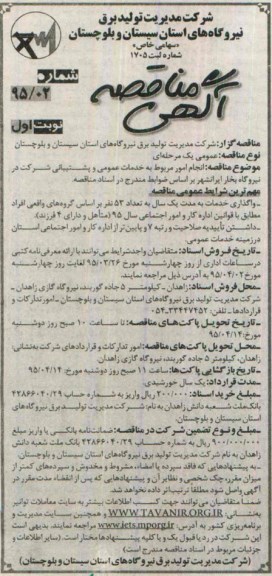 شرکت مدیریت تولید برق
نیروگاه‌های استان سیستان و بلوچستان
«سهامی خاص»
شماره ثبت ۱۷۰۵
آگهی مناقصه
شماره
۹۵/۰۲
نوبت اول
مناقصه گزار: شرکت مدیریت تولید برق نیروگاه‌های استان سیستان و بلوچستان
نوع مناقصه: عمومی یک مرحله‌ای
موضوع مناقصه: انجام امور مربوط به خدمات عمومی و پشتیبانی شرکت در
نیروگاه بخار ایرانشهر بر اساس ضوابط مندرج در اسناد مناقصه.
مهم‌ترین شرایط عمومی مناقصه:
-واگذاری خدمات به مدت یک سال به تعداد ۵۳ نفر بر اساس گروه‌های واقعی افراد
مطابق با قوانین اداره کار و امور اجتماعی سال ۹۵ (متأهل و دارای ۴ فرزند).
-داشتن تأییدیه صلاحیت و رتبه ۷ و پایین‌تر از اداره کار و امور اجتماعی استان
در زمینه خدمات عمومی.
-تاریخ فروش اسناد: متقاضیان واجد شرایط می‌توانند با ارائه معرفی‌نامه کتبی
در ساعات اداری از روز چهارشنبه مورخ ۹۵/۰۳/۲۶ لغایت روز چهارشنبه
مورخ ۹۵/۰۴/۰۲ به آدرس ذیل مراجعه نمایند.
-محل فروش اسناد: زاهدان - کیلومتر ۵ جاده کوربند، نیروگاه گازی زاهدان -
شرکت مدیریت تولید برق نیروگاه‌های استان سیستان و بلوچستان - امور تدارکات و
قراردادها - تلفن: ۳۳۴۴۷۴۵۲-۰۵۴
-تاریخ تحویل پاکت‌های مناقصه: تا ساعت ۱۰ صبح روز دوشنبه
مورخ ۹۵/۰۴/۱۴.
-محل تحویل پاکت‌های مناقصه: امور تدارکات و قراردادهای شرکت به نشانی:
زاهدان، کیلومتر ۵ جاده کوربند، نیروگاه گازی زاهدان.
-تاریخ بازگشایی پاکت‌ها: ساعت ۱۱ صبح روز دوشنبه مورخ ۹۵/۰۴/۱۴.
-مدت قرارداد: یک سال خورشیدی.
-مبلغ خرید اسناد: ۲۰۰/۰۰۰ ریال واریز به شماره حساب
بانک ملت شعبه دانش زاهدان به نام: شرکت مدیریت تولید برق نیروگاه‌های
استان سیستان و بلوچستان.
-مبلغ و نوع تضمین شرکت در مناقصه: ضمانت‌نامه بانکی یا واریز مبلغ
۹۰۰/۰۰۰/۰۰۰ ریال به شماره حساب بانک ملت شعبه دانش
زاهدان به نام شرکت مدیریت تولید برق نیروگاه‌های استان سیستان و بلوچستان.
-به پیشنهادهایی که فاقد سپرده یا امضاء، مشروط و مخدوش و سپرده‌های کمتر از
میزان مقرر، چک شخصی و نظایر آن و پیشنهادهایی که پس از انقضاء مدت مقرر در
آگهی واصل شود مطلقا ترتیب اثر داده نخواهد شد.
ضمناً متقاضیان می‌توانند جهت کسب اطلاعات بیشتر به سایت معاملات توانیر
به نشانی: WWW.TAVANIR.ORG.IR و همچنین سایت مدیریت و
برنامه‌ریزی کشور به آدرس: www.iets.mporg.ir مراجعه نمایند. بدیهی است
این شرکت در رد یا قبول یک و یا کلیه پیشنهادها مختار است. (سایر اطلاعات و
جزئیات مربوط در اسناد مناقصه مندرج است)
(شرکت مدیریت تولید برق نیروگاه‌های استان سیستان و بلوچستان)